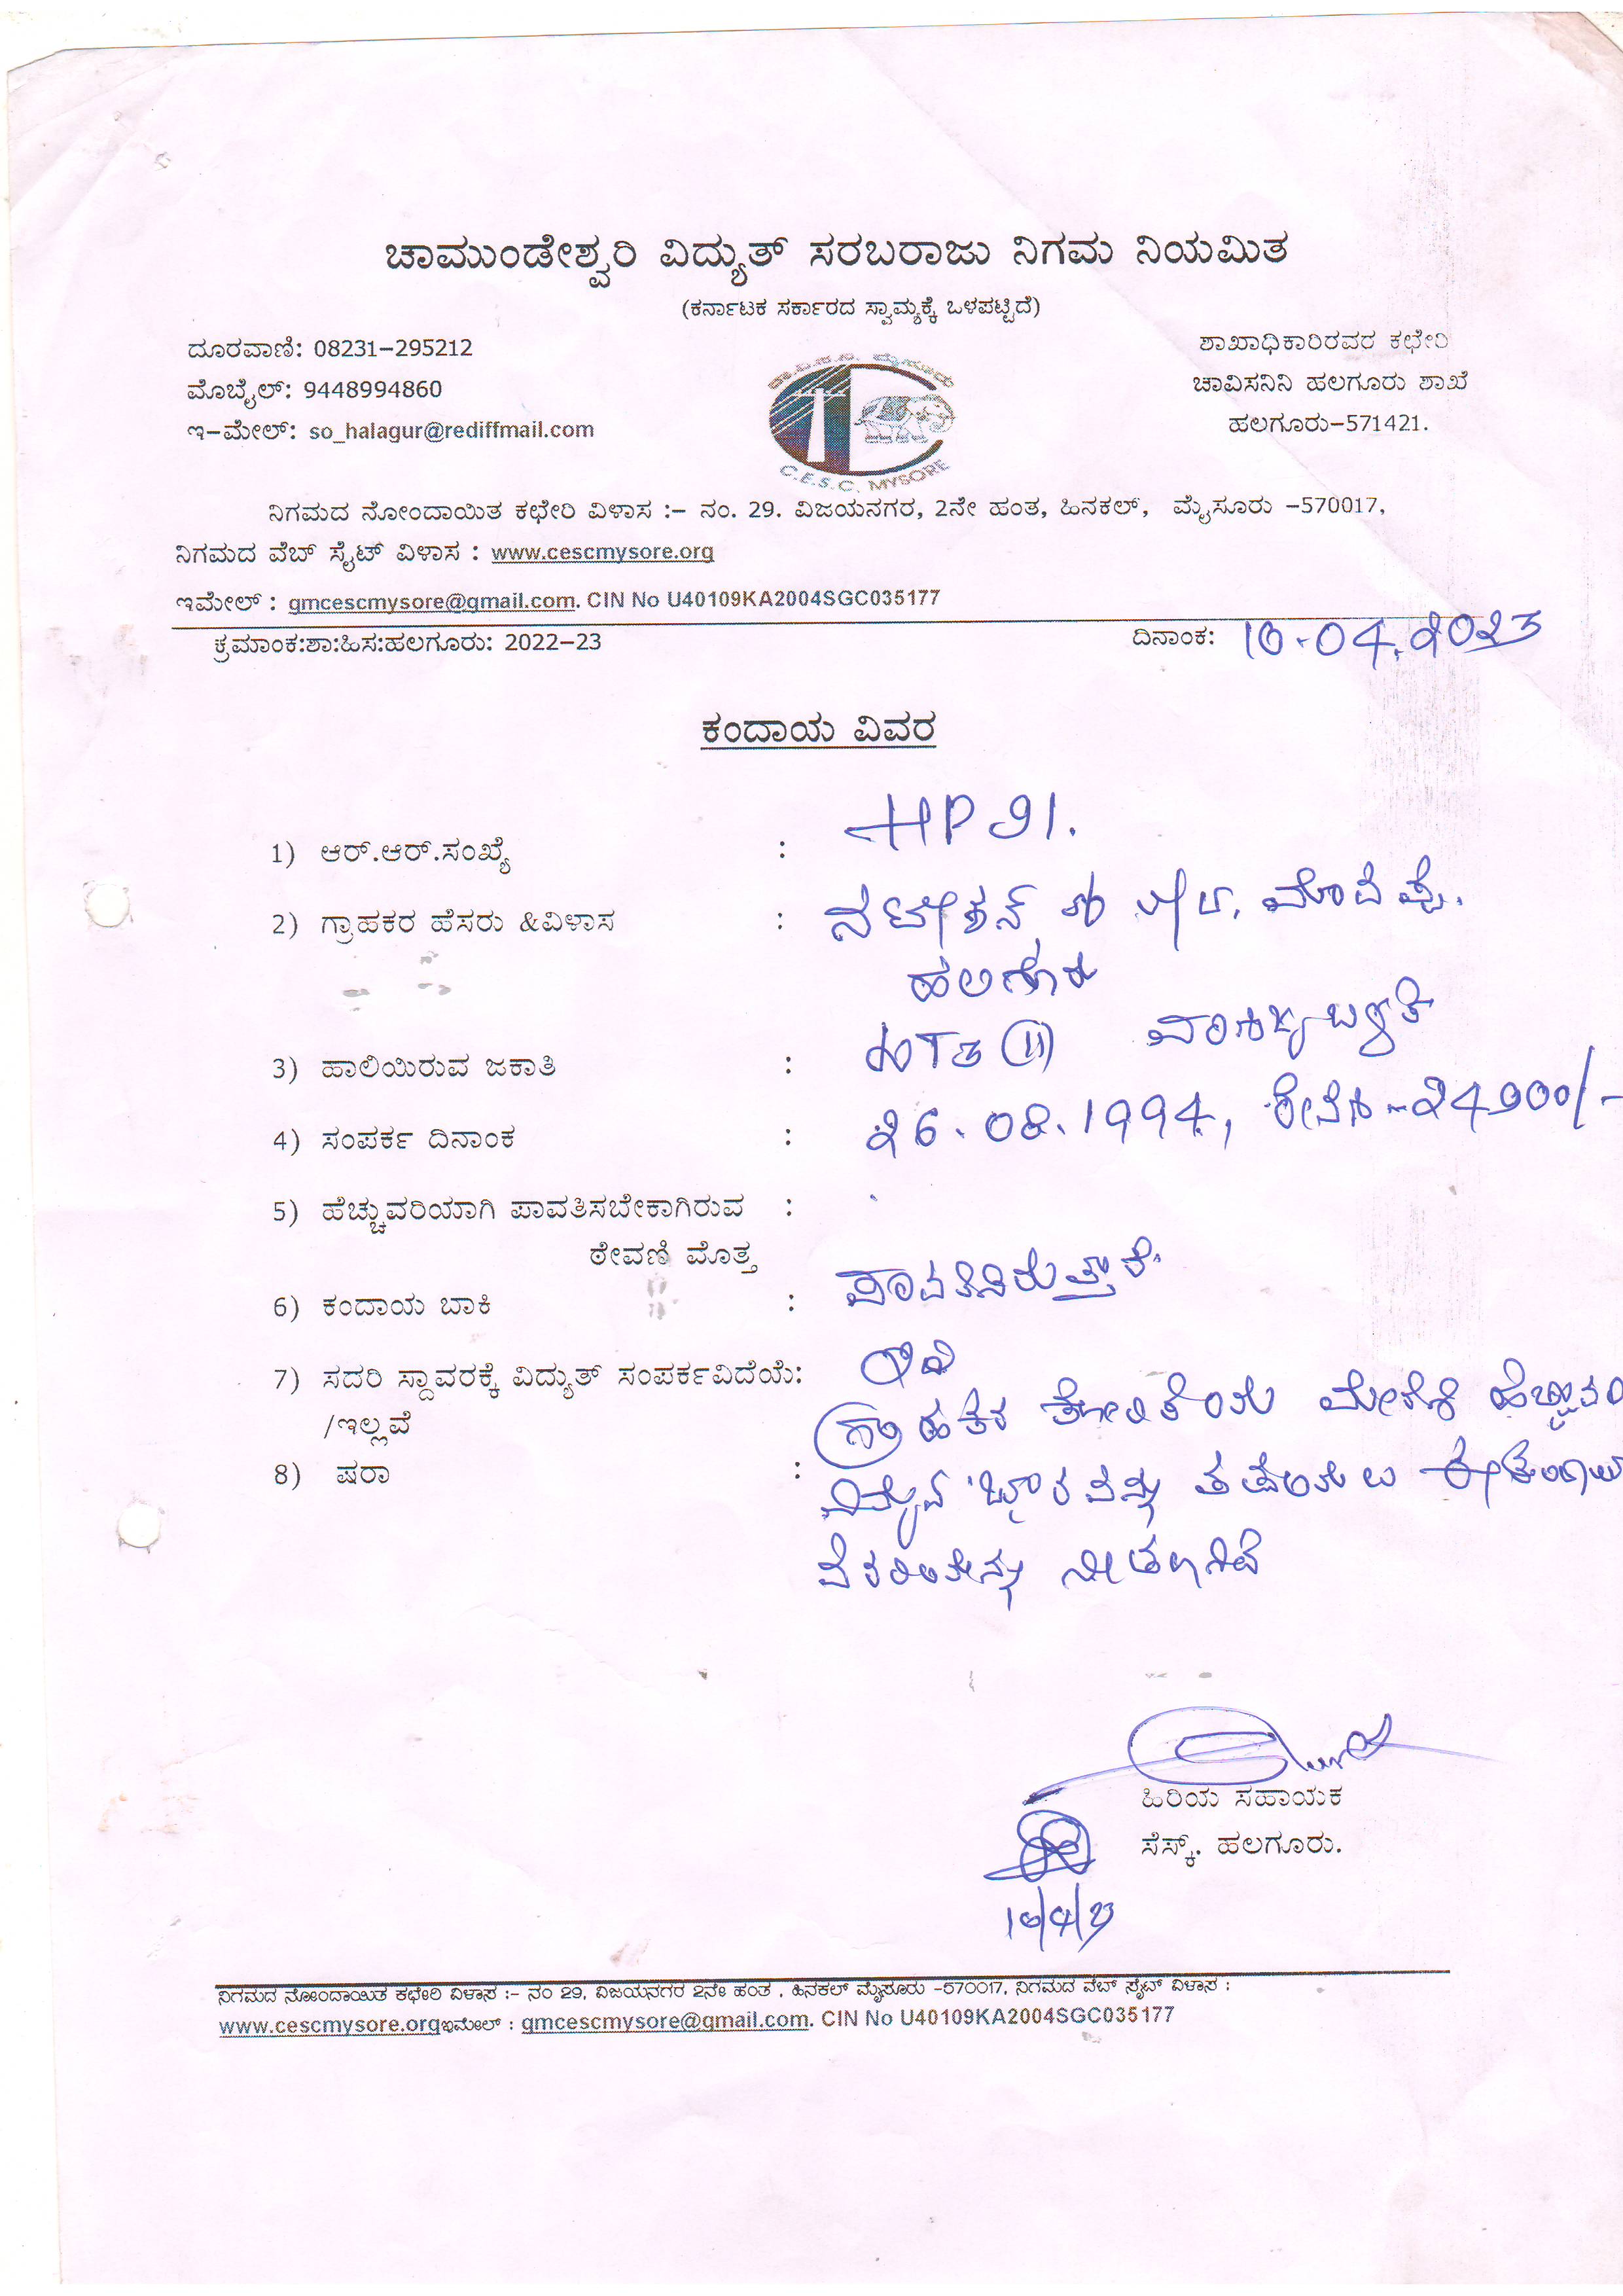 ಚಾಮುಂಡೇಶ್ವರಿ ವಿದ್ಯುತ್ ಸರಬರಾಜು ನಿಗಮ ನಿಯಮಿತ
(ಕರ್ನಾಟಕ ಸರ್ಕಾರದ ಸ್ವಾಮ್ಯಕ್ಕೆ ಒಳಪಟ್ಟಿದೆ)
ದೂರವಾಣಿ: 08231-295212
ಮೊಬೈಲ್: 9448994860
ಇ-ಮೇಲ್: so_halagur@rediffmail.com
C.E.S.C. MYSORE
ಶಾಖಾಧಿಕಾರಿರವರ ಕಛೇರಿ
ಚಾವಿಸನಿನಿ ಹಲಗೂರು ಶಾಖೆ
ಹಲಗೂರು-571421.
ನಿಗಮದ ನೋಂದಾಯಿತ ಕಛೇರಿ ವಿಳಾಸ :- ನಂ. 29. ವಿಜಯನಗರ, 2ನೇ ಹಂತ, ಹಿನಕಲ್, ಮೈಸೂರು -570017,
ನಿಗಮದ ವೆಬ್ ಸೈಟ್ ವಿಳಾಸ : www.cescmysore.org
ಇಮೇಲ್ : gmcescmysore@gmail.com. CIN No U40109KA2004SGC035177
ಕ್ರಮಾಂಕ:ಶಾ:ಹಿಸ:ಹಲಗೂರು: 2022-23 ದಿನಾಂಕ: 10.04.2023
ಕಂದಾಯ ವಿವರ
1) ಆರ್.ಆರ್.ಸಂಖ್ಯೆ : HP 91.
2) ಗ್ರಾಹಕರ ಹೆಸರು &ವಿಳಾಸ :
ಹಲಗೂರು
3) ಹಾಲಿಯಿರುವ ಜಕಾತಿ :
4) ಸಂಪರ್ಕ ದಿನಾಂಕ : 26.08.1994, ಠೇವಣಿ-24900/-
5) ಹೆಚ್ಚುವರಿಯಾಗಿ ಪಾವತಿಸಬೇಕಾಗಿರುವ :
ಠೇವಣಿ ಮೊತ್ತ
6) ಕಂದಾಯ ಬಾಕಿ : ಪಾವತಿಸಿರುತ್ತಾರೆ.
7) ಸದರಿ ಸ್ದಾವರಕ್ಕೆ ವಿದ್ಯುತ್ ಸಂಪರ್ಕವಿದೆಯೆ: ಇದೆ
/ಇಲ್ಲವೆ ಗ್ರಾಹಕರ ಕೋರಿಕೆಯ ಮೇರೆಗೆ
8) ಷರಾ :
ಹಿರಿಯ ಸಹಾಯಕ
ಸೆಸ್ಕ್. ಹಲಗೂರು.
10/4/23
ನಿಗಮದ ನೋಂದಾಯಿತ ಕಛೇರಿ ವಿಳಾಸ :- ನಂ 29, ವಿಜಯನಗರ 2ನೇ ಹಂತ , ಹಿನಕಲ್ ಮೈಸೂರು -570017, ನಿಗಮದ ವೆಬ್ ಸೈಟ್ ವಿಳಾಸ :
www.cescmysore.orgಇಮೇಲ್ : gmcescmysore@gmail.com. CIN No U40109KA2004SGC035177